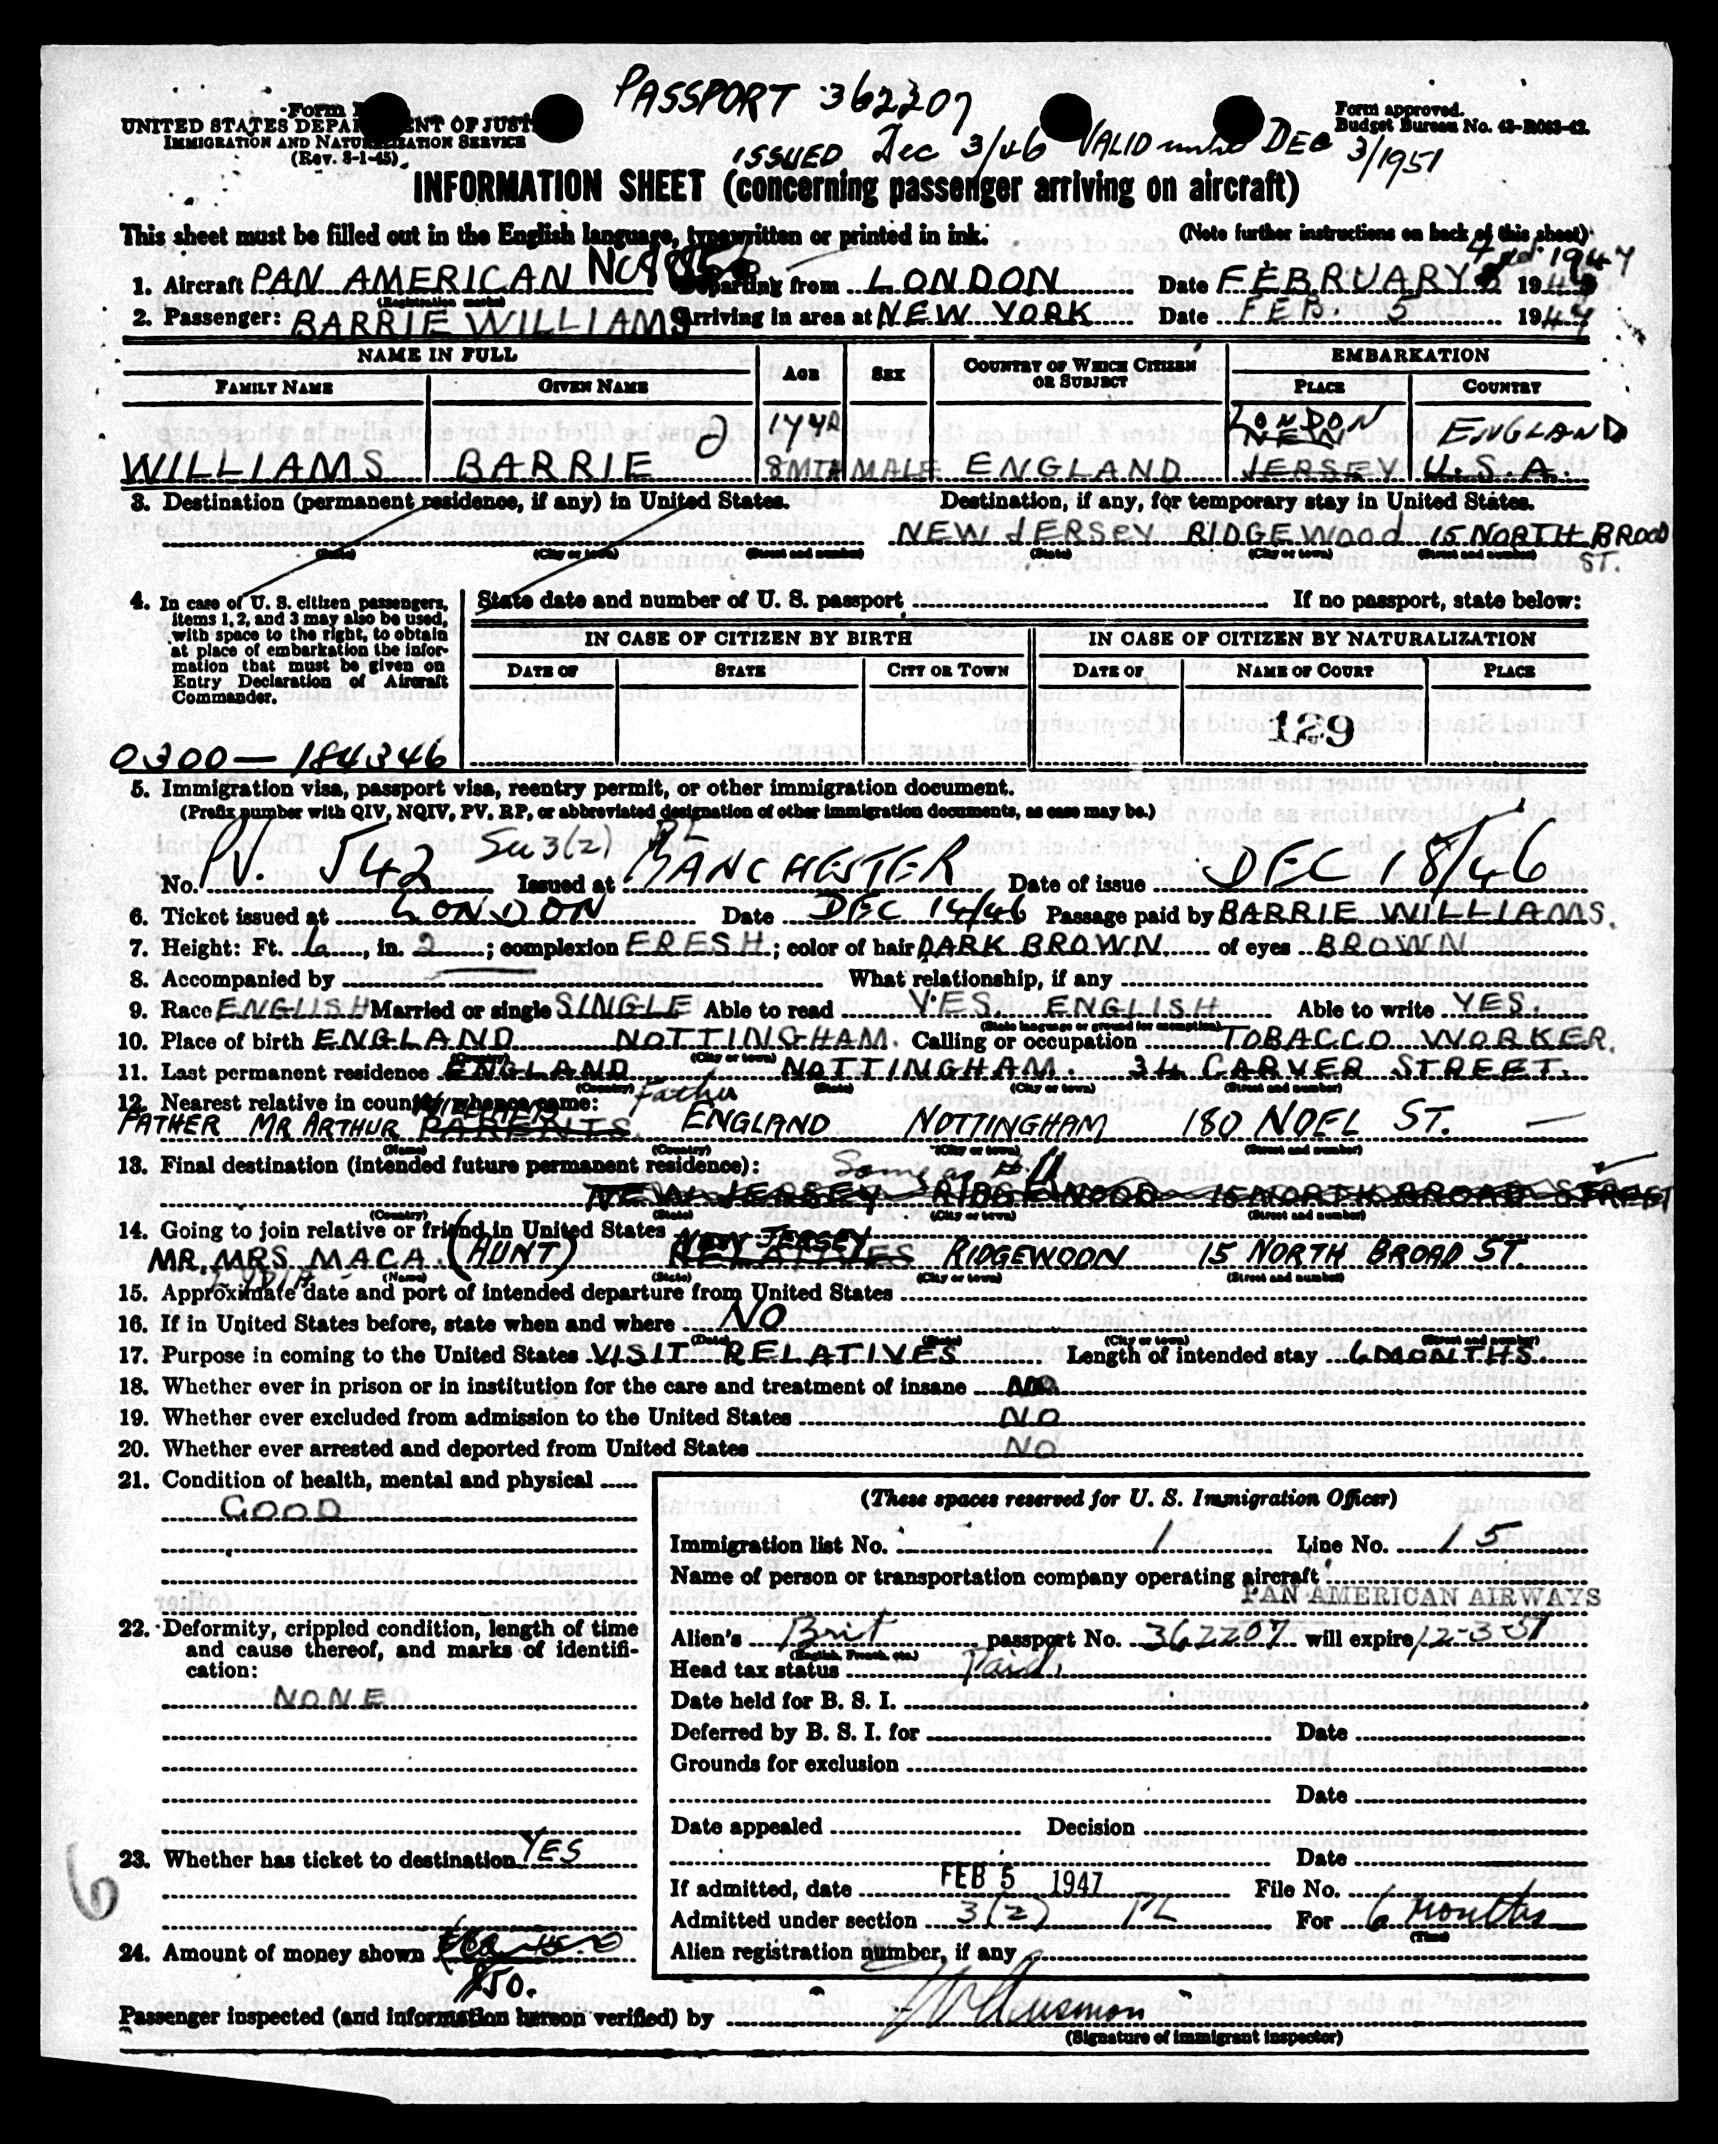 PASSPORT 362207
Form
UNITED STATES DEPARTMENT OF JUSTICE
IMMIGRATION AND NATURALIZATION SERVICE
(Rev. 8-1-45)
Form approved.
Budget Bureau No. 43-R083-42.
ISSUED Dec 3/46 VALID until DEC 3/1951
INFORMATION SHEET (concerning passenger arriving on aircraft)
This sheet must be filled out in the English language, typewritten or printed in ink. (Note further instructions on back of this sheet)
1. Aircraft PAN AMERICAN Departing from LONDON Date FEBRUARY 4 1947
(Registration marks)
2. Passenger: BARRIE WILLIAMS Arriving in area at NEW YORK Date FEB. 5 1947
NAME IN FULL AGE SEX COUNTRY OF WHICH CITIZEN OR SUBJECT EMBARKATION
FAMILY NAME GIVEN NAME PLACE COUNTRY
LONDON ENGLAND
WILLIAMS BARRIE 17 YR 8 MTH MALE ENGLAND NEW JERSEY U.S.A.
3. Destination (permanent residence, if any) in United States. Destination, if any, for temporary stay in United States.
NEW JERSEY RIDGEWOOD 15 NORTH BROAD ST.
(State) (City or town) (Street and number) (State) (City or town) (Street and number)
4. In case of U. S. citizen passengers, items 1, 2, and 3 may also be used, with space to the right, to obtain at place of embarkation the information that must be given on Entry Declaration of Aircraft Commander.
State date and number of U. S. passport If no passport, state below:
IN CASE OF CITIZEN BY BIRTH IN CASE OF CITIZEN BY NATURALIZATION
DATE OF STATE CITY OR TOWN DATE OF NAME OF COURT PLACE
129
0300 — 184346
5. Immigration visa, passport visa, reentry permit, or other immigration document.
(Prefix number with QIV, NQIV, PV, RP, or abbreviated designation of other immigration documents, as case may be.)
No. PV. 542 Sec 3(2) Issued at MANCHESTER Date of issue DEC 18/46
6. Ticket issued at LONDON Date DEC 14/46 Passage paid by BARRIE WILLIAMS.
7. Height: Ft. 6, in. 2; complexion FRESH; color of hair DARK BROWN. of eyes BROWN
8. Accompanied by What relationship, if any
9. Race ENGLISH Married or single SINGLE Able to read YES. ENGLISH Able to write YES.
(State language or ground for exemption)
10. Place of birth ENGLAND NOTTINGHAM. Calling or occupation TOBACCO WORKER.
(Country) (City or town)
11. Last permanent residence ENGLAND NOTTINGHAM. 34 CARVER STREET.
(Country) (State) (City or town) (Street and number)
12. Nearest relative in country whence came: Father
FATHER MR ARTHUR WILLIAMS PARENTS. ENGLAND NOTTINGHAM 180 NOEL ST. —
(Name) (Country) (City or town) (Street and number)
13. Final destination (intended future permanent residence): Same as # 11
NEW JERSEY RIDGEWOOD 15 NORTH BROAD STREET
(Country) (State) (City or town) (Street and number)
14. Going to join relative or friend in United States NEW JERSEY
MR, MRS MACA. (AUNT) RELATIVES RIDGEWOOD 15 NORTH BROAD ST.
(Name) (State) (City or town) (Street and number)
LYDIA
15. Approximate date and port of intended departure from United States
16. If in United States before, state when and where NO
(Date) (State) (City or town) (Street and number)
17. Purpose in coming to the United States VISIT RELATIVES Length of intended stay 6 MONTHS.
18. Whether ever in prison or in institution for the care and treatment of insane NO
19. Whether ever excluded from admission to the United States NO
20. Whether ever arrested and deported from United States NO
21. Condition of health, mental and physical
GOOD
22. Deformity, crippled condition, length of time and cause thereof, and marks of identification:
NONE
23. Whether has ticket to destination YES
6
24. Amount of money shown
$50.
(These spaces reserved for U. S. Immigration Officer)
Immigration list No. 1 Line No. 15
Name of person or transportation company operating aircraft
PAN AMERICAN AIRWAYS
Alien's Brit passport No. 362207 will expire 12-3-51
(English, French, etc.)
Head tax status Paid.
Date held for B. S. I.
Deferred by B. S. I. for Date
Grounds for exclusion
Date
Date appealed Decision
Date
If admitted, date FEB 5 1947 File No.
Admitted under section 3(2) PL For 6 Months
(Time)
Alien registration number, if any
Passenger inspected (and information hereon verified) by
(Signature of immigrant inspector)